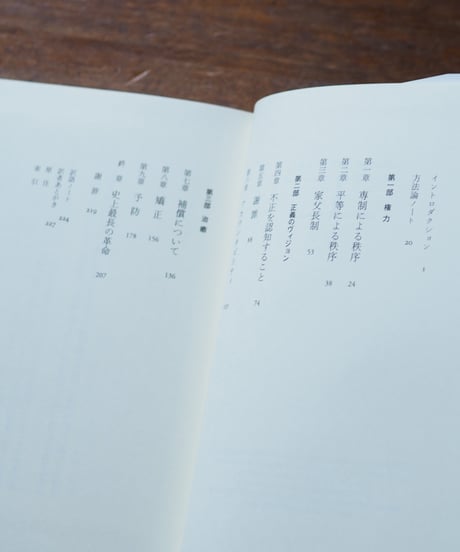 イントロダクション 1
方法論ノート 20
第一部 権力
第一章 専制による秩序 24
第二章 平等による秩序 38
第三章 家父長制 53
第二部 正義のヴィジョン
第四章 不正を認知すること 74
第五章 謝罪
第三部 治癒
第七章 補償について 136
第八章 矯正 156
第九章 予防 178
終章 史上最長の革命 207
謝辞 219
訳語ノート
訳者あとがき 224
原注 227
索引